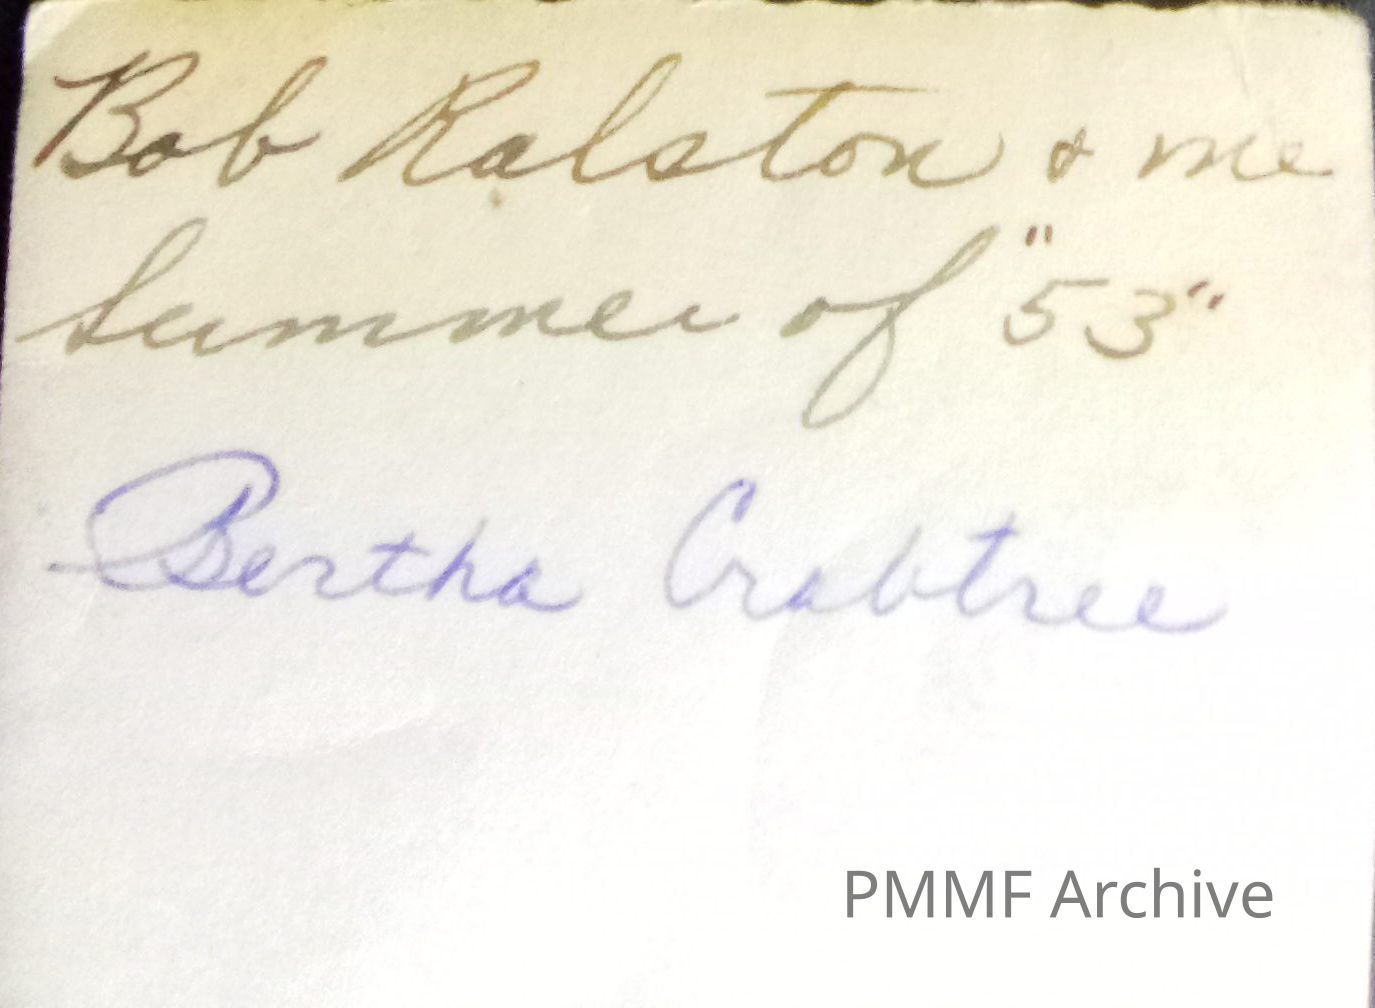 Bob Ralston & me
Summer of "53"
Bertha Crabtree
PMMF Archive